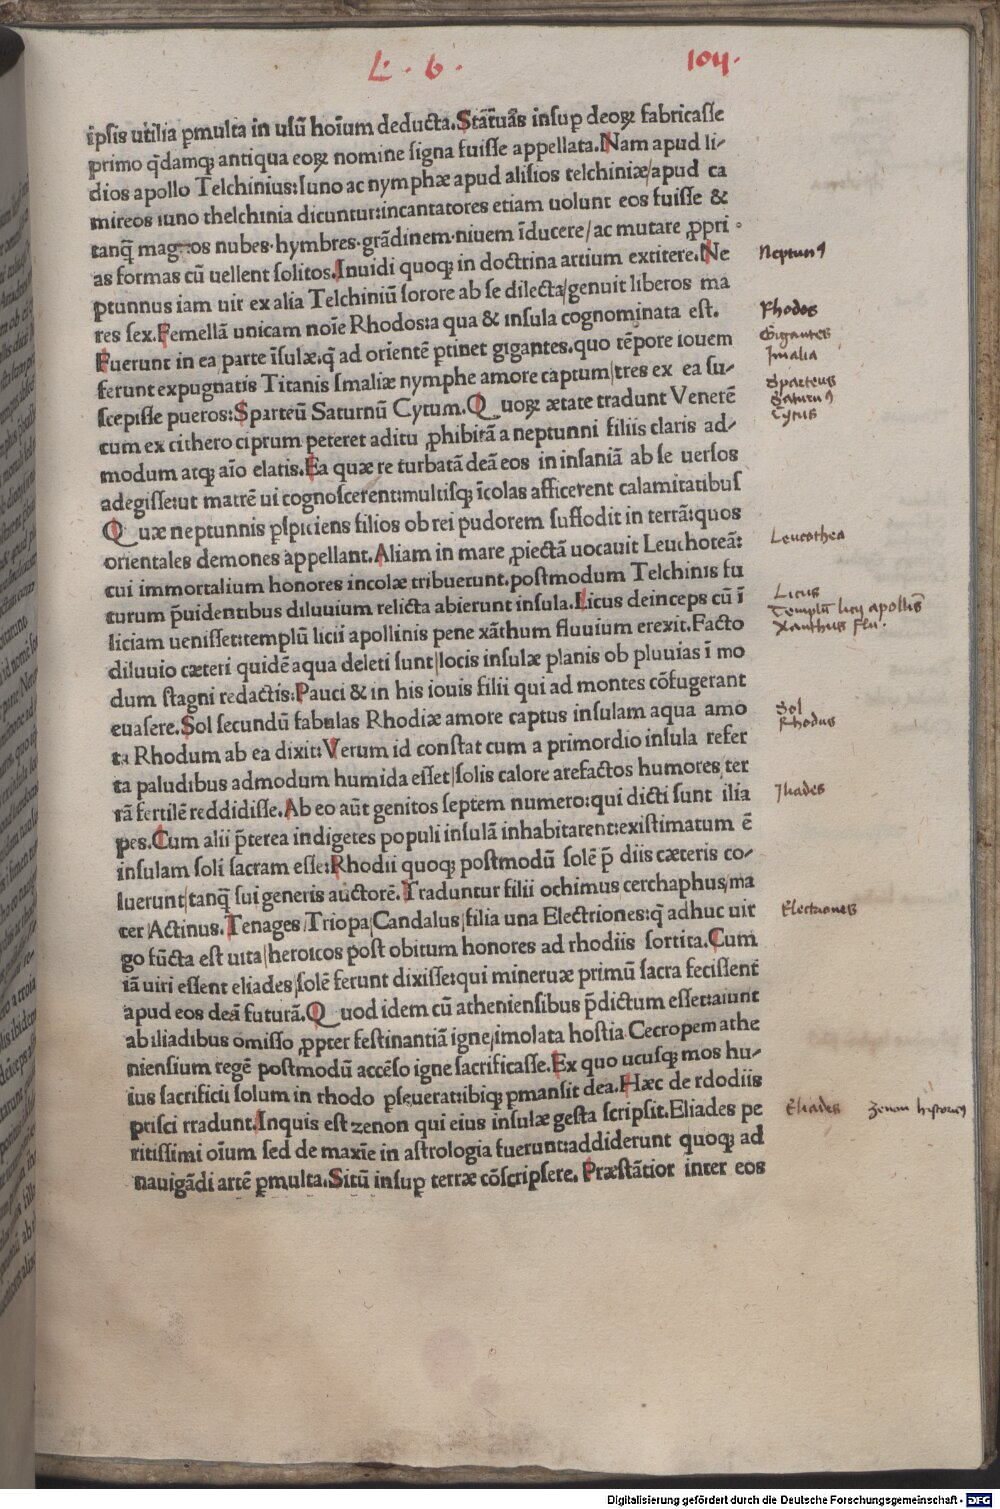 L. 6. 104.
ipsis utilia ꝑmulta in usũ hoĩum deducta. Statuãs insuꝑ deoꝝ fabricasse
primo q̃damqꝫ antiqua eoꝝ nomine signa fuisse appellata. Nam apud li⸗
dios apollo Telchinius: Iuno ac nymphæ apud alisios telchiniæ/apud ca
mireos iuno thelchinia dicuntur: incantatores etiam uolunt eos fuisse &
tanq̃ magos nubes. hymbres. grãdinem. niuem ĩducere/ ac mutare ꝓpri
as formas cũ uellent solitos. Inuidi quoqꝫ in doctrina artium extitere. Ne
Neptunꝰ
ptunnus iam uir ex alia Telchiniũ sorore ab se dilecta/genuit liberos ma
res sex. Femellã unicam noĩe Rhodos: a qua & insula cognominata est.
Rhodos
Fuerunt in ea parte ĩsulæ. q̃ ad orientẽ ꝑtinet gigantes. quo tẽpore iouem
Gigantes
Imalia
ferunt expugnatis Titanis Imaliæ nymphe amore captum/tres ex ea su⸗
scepisse pueros: Sparteũ Saturnũ Cytum. Quoꝝ ætate tradunt Venerẽ
Sparteus
Saturnꝰ
Cytus
cum ex cithero ciprum peteret aditu ꝓhibitã a neptunni filiis claris ad⸗
modum atqꝫ aĩo elatis. Ea quæ re turbatã deã eos in insaniã ab se uersos
adegisse: ut matrẽ ui cognoscerent: multisqꝫ ĩcolas afficerent calamitatibus
Quæ neptunnis ꝑspiciens filios ob rei pudorem suffodit in terrã: quos
orientales demones appellant. Aliam in mare ꝓiectã uocauit Leuchoteã:
Leucothea
cui immortalium honores incolæ tribuerunt. postmodum Telchinis fu
turum p̃uidentibus diluuium relicta abierunt insula. Licus deinceps cũ ĩ
Licus
Templũ licij apollĩs
Xanthus flu.
liciam uenisset: templũ licii apollinis pene xãthum fluuium erexit. Facto
diluuio cæteri quidẽ aqua deleti sunt/locis insulæ planis ob pluuias ĩ mo
dum stagni redactis: Pauci & in his iouis filii qui ad montes cõfugerant
euasere. Sol secundũ fabulas Rhodiæ amore captus insulam aqua amo
Sol
Rhodus
ta Rhodum ab ea dixit: Verum id constat cum a primordio insula refer
ta paludibus admodum humida esset/solis calore arefactos humores ter
rã fertilẽ reddidisse. Ab eo aũt genitos septem numero: qui dicti sunt ilia
Iliades
pes. Cum alii p̃terea indigetes populi insulã inhabitarent: existimatum ẽ
insulam soli sacram esse: Rhodii quoqꝫ postmodũ solẽ p̃ diis cæteris co⸗
luerunt/tanq̃ sui generis auctorẽ. Traduntur filii ochimus cerchaphus/ma
cer/Actinus. Tenages/Triopa/Candalus/filia una Electriones: q̃ adhuc uir
Electriones
go fũcta est uita/heroicos post obitum honores ad rhodiis sortita. Cum
iã uiri essent eliades/solẽ ferunt dixisse: qui mineruæ primũ sacra fecissent
apud eos deã futurã. Quod idem cũ atheniensibus p̃dictum esset: aiunt
ab iliadibus omisso ꝓpter festinantiã igne/imolata hostia Cecropem athe
niensium regẽ postmodũ accẽso igne sacrificasse. Ex quo ucusqꝫ mos hu⸗
ius sacrificii solum in rhodo ꝑseuerat: ibiqꝫ ꝑmansit dea. Hæc de rdodiis
prisci rradunt. Inquis est zenon qui eius insulæ gesta scripsit. Eliades pe
Eliades zenon historicꝰ
ritissimi oĩum sed de maxĩe in astrologia fuerunt: addiderunt quoqꝫ ad
nauigãdi artẽ ꝑmulta. Sitũ insuꝑ terræ cõscripsere. Præstãtior inter eos
Digitalisierung gefördert durch die Deutsche Forschungsgemeinschaft - DFG